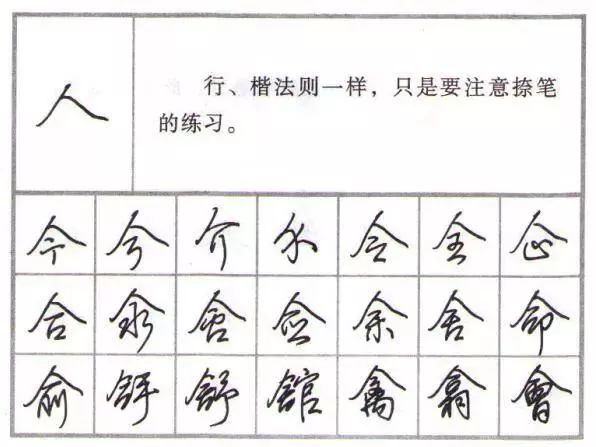 人
行、楷法则一样，只是要注意捺笔
的练习。
今 兮 介 令 全 企
合 含 佥 余 舍 命
俞 舒 舘 禽 翕 會